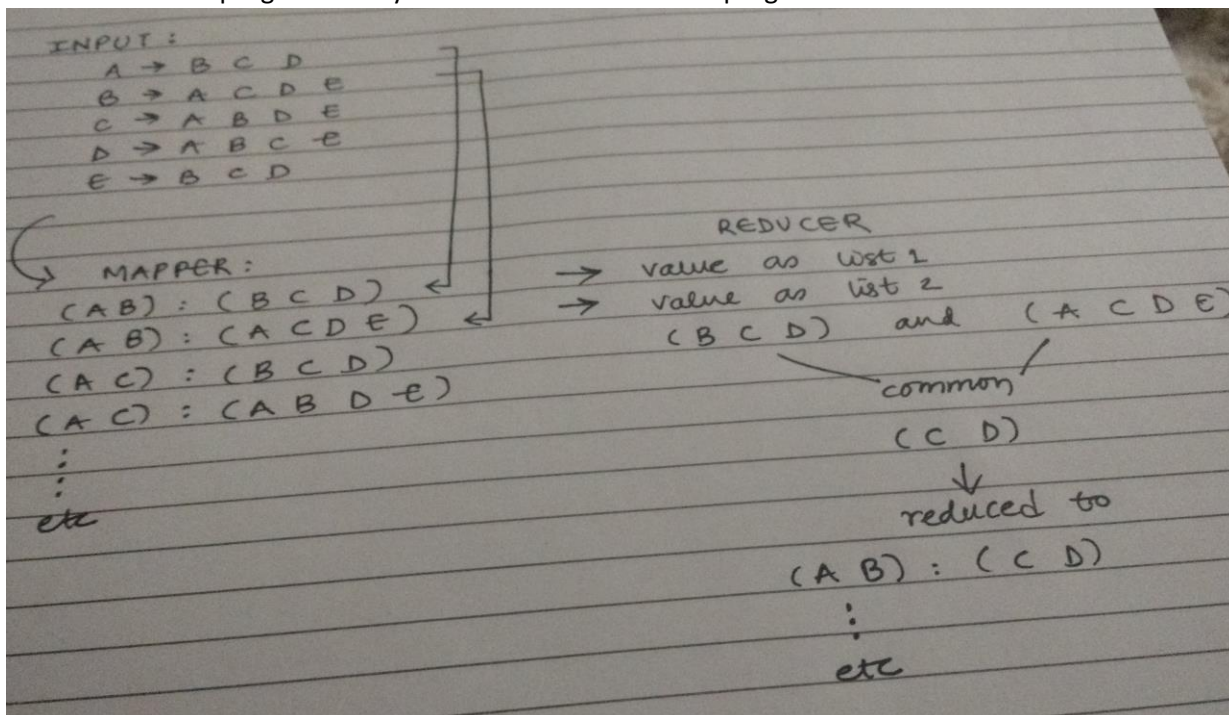 INPUT :
A → B C D
B → A C D E
C → A B D E
D → A B C E
E → B C D
MAPPER :
(A B) : (B C D)
(A B) : (A C D E)
(A C) : (B C D)
(A C) : (A B D E)
:
:
etc
REDUCER
→ value as list 1
→ value as list 2
(B C D) and (A C D E)
common
(C D)
↓
reduced to
(A B) : (C D)
⋮
etc